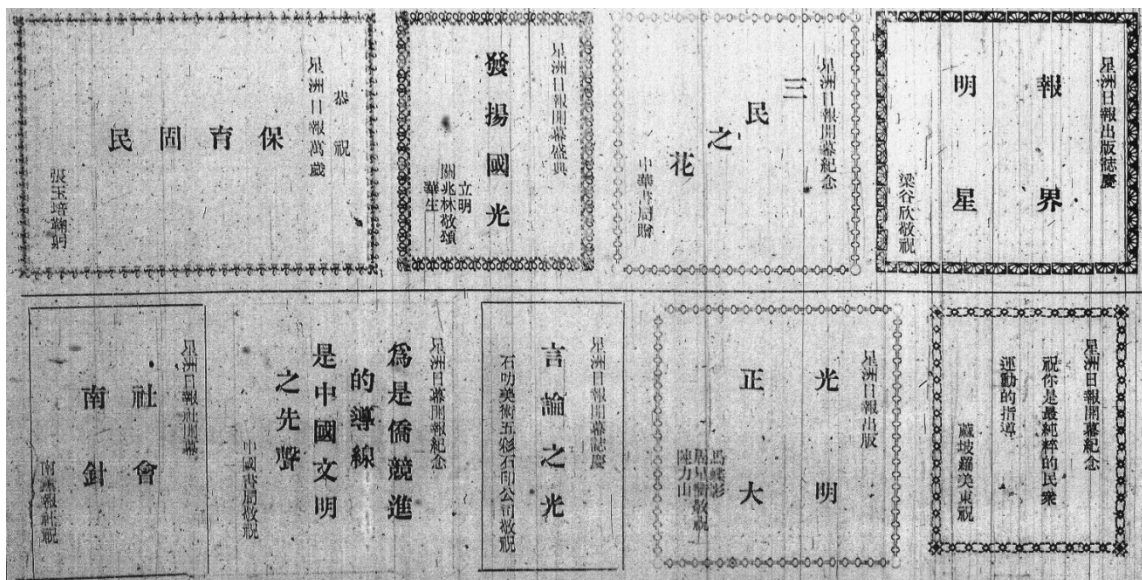 星洲日報出版誌慶
報界
明星
梁谷欣敬祝
星洲日報開幕紀念
三民之花
中華書局贈
星洲日報開幕盛典
發揚國光
立明
關兆林敬頌
華生
恭祝
星洲日報萬歲
保育固民
張玉培鞠躬
星洲日報開幕紀念
祝你是最純粹的民衆
運動的指導
蔴坡羅美東祝
星洲日報出版
光明
正大
馬蝶影
周星衢敬祝
陳力山
星洲日報開幕誌慶
言論之光
石叻美術五彩石印公司敬祝
星洲日幕開報紀念
爲是僑競進
的導線
是中國文明
之先聲
中國書局敬祝
星洲日報社開幕
社會
南針
南 報社祝